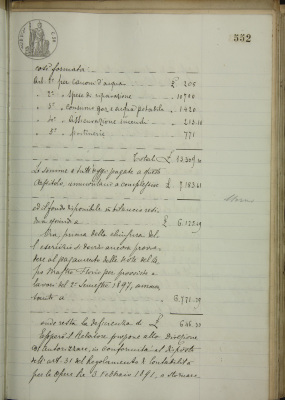 552
così formata:
Art. 1º per Canoni d'acqua £ 205
" 2º Spese di riparazione " 10700
" 3º Consumo gaz e acqua potabile " 1420
" 4º Assicurazione incendi " 212.10
" 5º Portineria " 771
Totale £
Le somme a tutt'oggi pagate a questo
Capitolo, ammontano a complessive £ 7183.61
ed il fondo disponibile in bilancio resi-
dua quindi a £
Ora, prima della chiusura del-
l'esercizio si dovrà ancora provve-
dere al pagamento delle note del
po Mastro per provviste e
lavori del 2º Semestre 1897, ammon-
tanti a
onde resta la deficienza di £
Epperò il Relatore propone alla Direzione
di autorizzare, in conformità al disposto
dell'art. 31 del Regolamento di Contabilità
per le Opere Pie 5 Febbraio 1891, a stornare